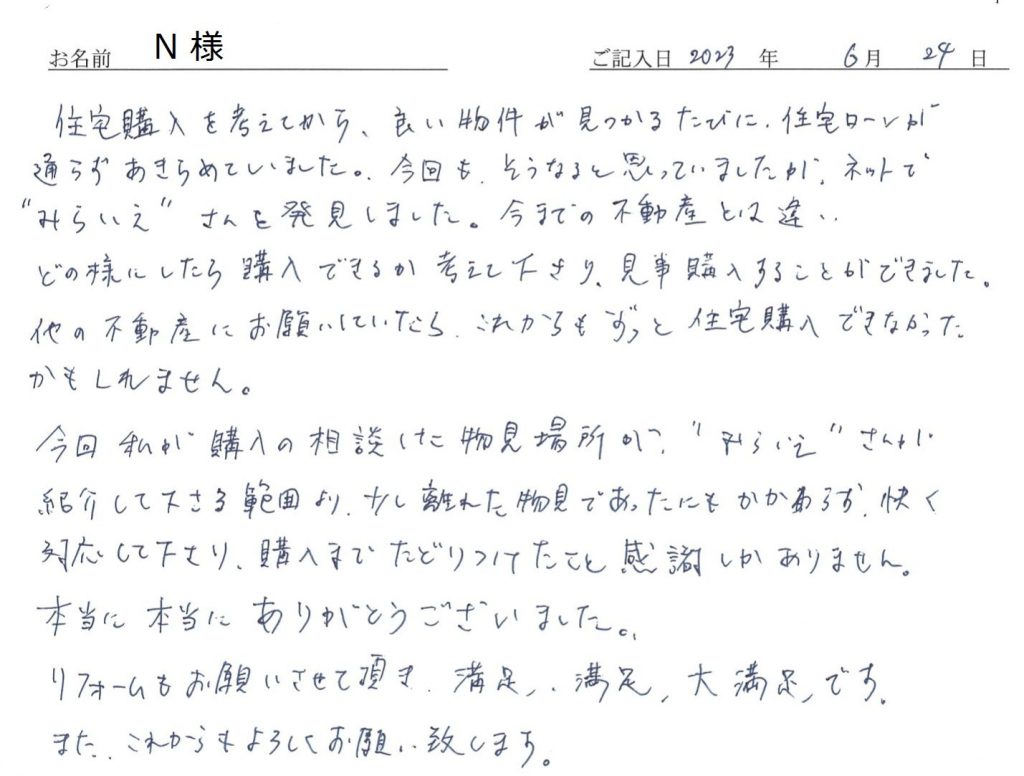 お名前 N 様 ご記入日 2023 年 6月 24 日
住宅購入を考えてから、良い物件が見つかるたびに、住宅ローンが
通らずあきらめていました。今回も、そうなると思っていましたが、ネットで
"みらいえ"さんを発見しました。今までの不動産とは違い、
どの様にしたら購入できるか考えて下さり、見事購入することができました。
他の不動産にお願いしていたら、これからもずっと住宅購入できなかった
かもしれません。
今回私が購入の相談した物見場所が、"みらいえ"さんが
紹介して下さる範囲より、少し離れた物見であったにもかかわらず、快く
対応して下さり、購入までたどりつけたこと感謝しかありません。
本当に本当にありがとうございました。
リフォームもお願いさせて頂き、満足、満足、大満足です。
また、これからもよろしくお願い致します。